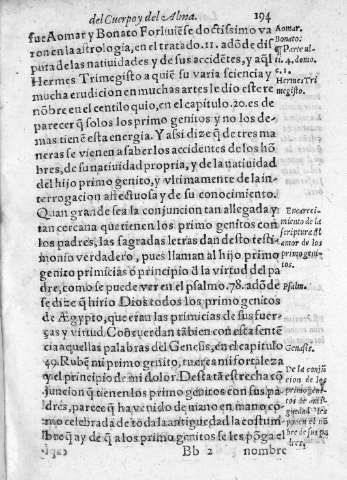 del Cuerpo y del Alma. 194
fue Aomar y Bonato Forliuiēse doctissimo va
ron en la astrologia, en el tratado .11. adōde dis
puta de las natiuidades y de sus accidētes, y aq̄l
Hermes Trimegisto a quiē su varia sciencia y
mucha erudicion en muchas artes le dio este re
nōbre en el centiloquio, en el capitulo .20. es de
parecer q̄ solos los primogenitos y no los de-
mas tienē esta energia. Y assi dize q̄ de tres ma
neras se vienen a saber los accidentes de los hō
bres, de su natiuidad propria, y de la natiuidad
del hijo primogenito, y vltimamente de la in-
terrogacion affectuosa y de su conocimiento.
Quan grande sea la conjuncion tan allegada y
tan cercana que tienen los primogenitos con
los padres, las sagradas letras dan desto testi-
monio verdadero, pues llaman al hijo primo
genito primicias o principio d̄ la virtud del pa
dre, como se puede ver en el psalmo .78. adōde
se dize q̄ hirio Dios todos los primogenitos
de Ægypto, que eran las primicias de sus fuer
ças y virtud. Concuerdan tābien con esta sentē
cia aquellas palabras del Genesis, en el capitulo
49. Rubē mi primogenito, tu eres mi fortaleza
y el principio de mi dolor. Desta tā estrecha cō
juncion q̄ tienen los primogenitos con sus pa
dres, parece q̄ ha venido de mano en mano, co
mo celebrada de toda la antiguedad la costum
bre q̄ ay de q̄ a los primogenitos se les pōga el
Bb 2 nombre
Aomar.
Bonato:
Parte al-
ii. 4. domo.
c. 1.
Hermes Tri
megisto.
Encareci-
miento de la
scriptura d̄l
amor de los
primogeni-
tos.
Psalm.
Genesis.
De la conjū
cion de los
primogeni-
tos